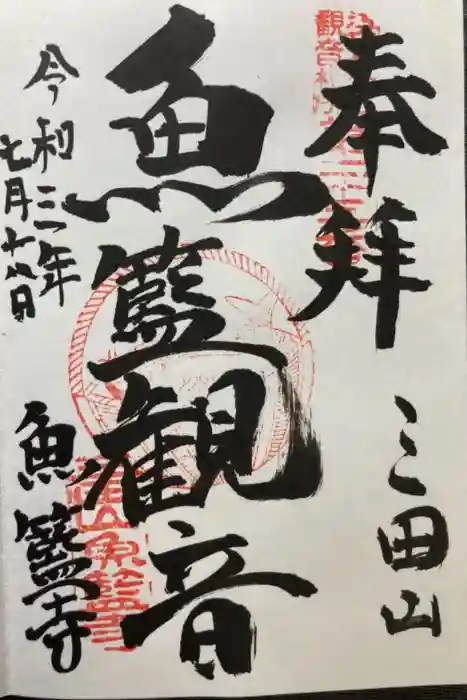 奉拝
三田山
魚籃観音
令和三年
七月十八日
魚籃寺